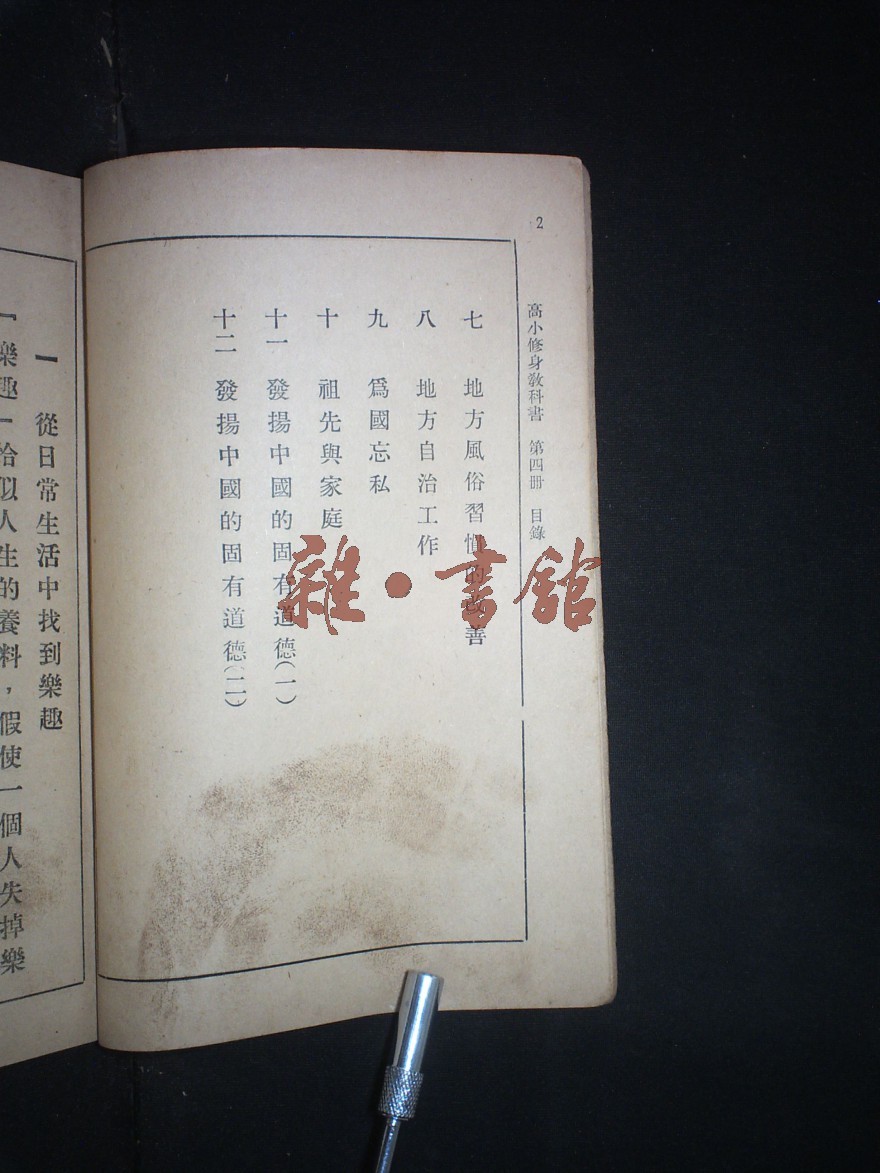 2
高小修身教科書 第四冊 目錄
七 地方風俗習慣的改善
八 地方自治工作
九 爲國忘私
十 祖先與家庭
十一 發揚中國的固有道德(一)
十二 發揚中國的固有道德(二)
一 從日常生活中找到樂趣
「樂趣」恰似人生的養料，假使一個人失掉樂
雜·書館